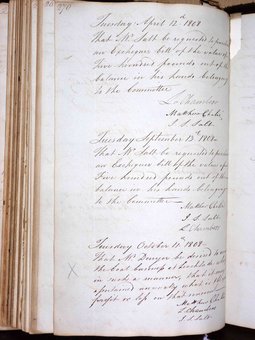 Tuesday April 12th 1808
That Mr Salt be requested to provide
an Exchequer bill of the value of
Five hundred pounds out of the
balance in his hands belonging
to the Committee
L. Chambers
Matthew Clarke
J. S. Salt
Tuesday September 13th 1808
That Mr Salt be requested to provide
an Exchequer bill of the value of
Five hundred pounds out of the
balance in his hands belonging
to the Committee
Matthew Clarke
J. S. Salt
L. Chambers
Tuesday October 11 1808
That Mr be desired to
the Coal business at
in such a manner, that it may be
ascertained annually what is the
profit or loss on that
Matthew Clarke
L. Chambers
J. S. Salt